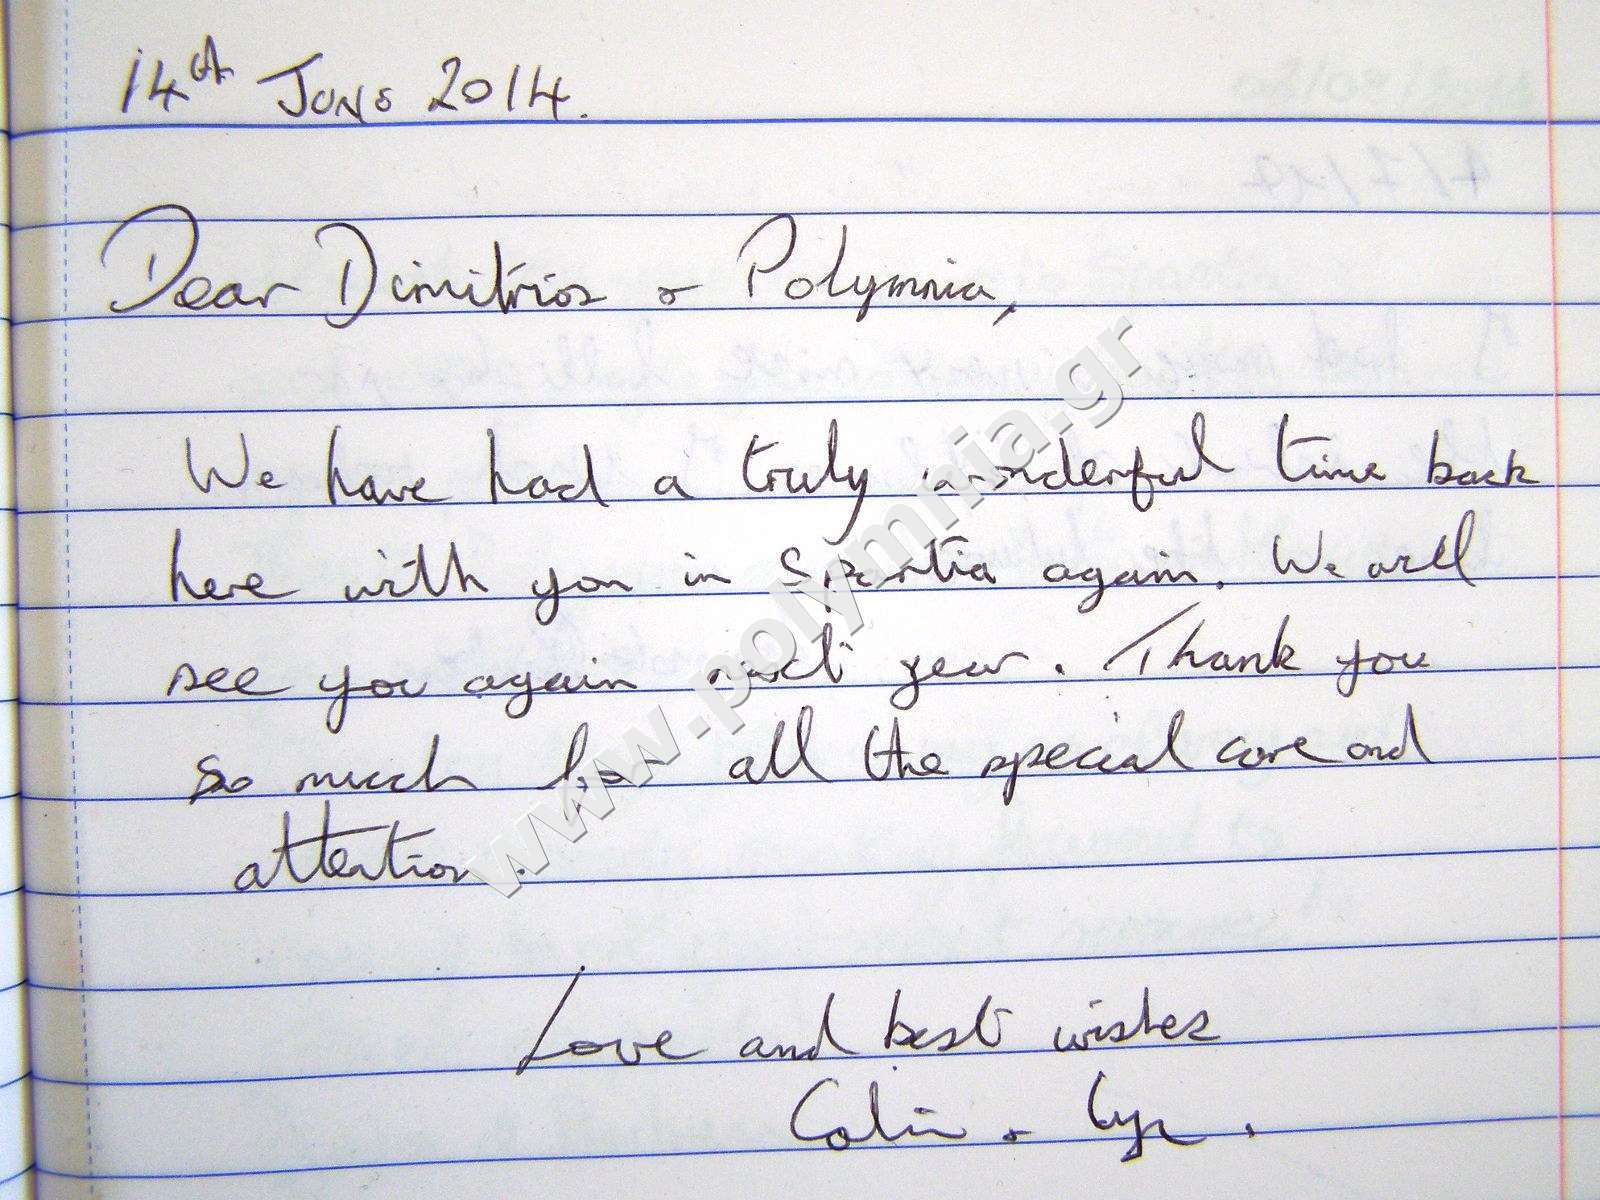 14th June 2014.
Dear Dimitrios & Polymnia,
We have had a truly wonderful time back
here with you in Spartia again. We will
see you again next year. Thank you
so much for all the special care and
attention.
Love and best wishes
Colin &
www.polymnia.gr